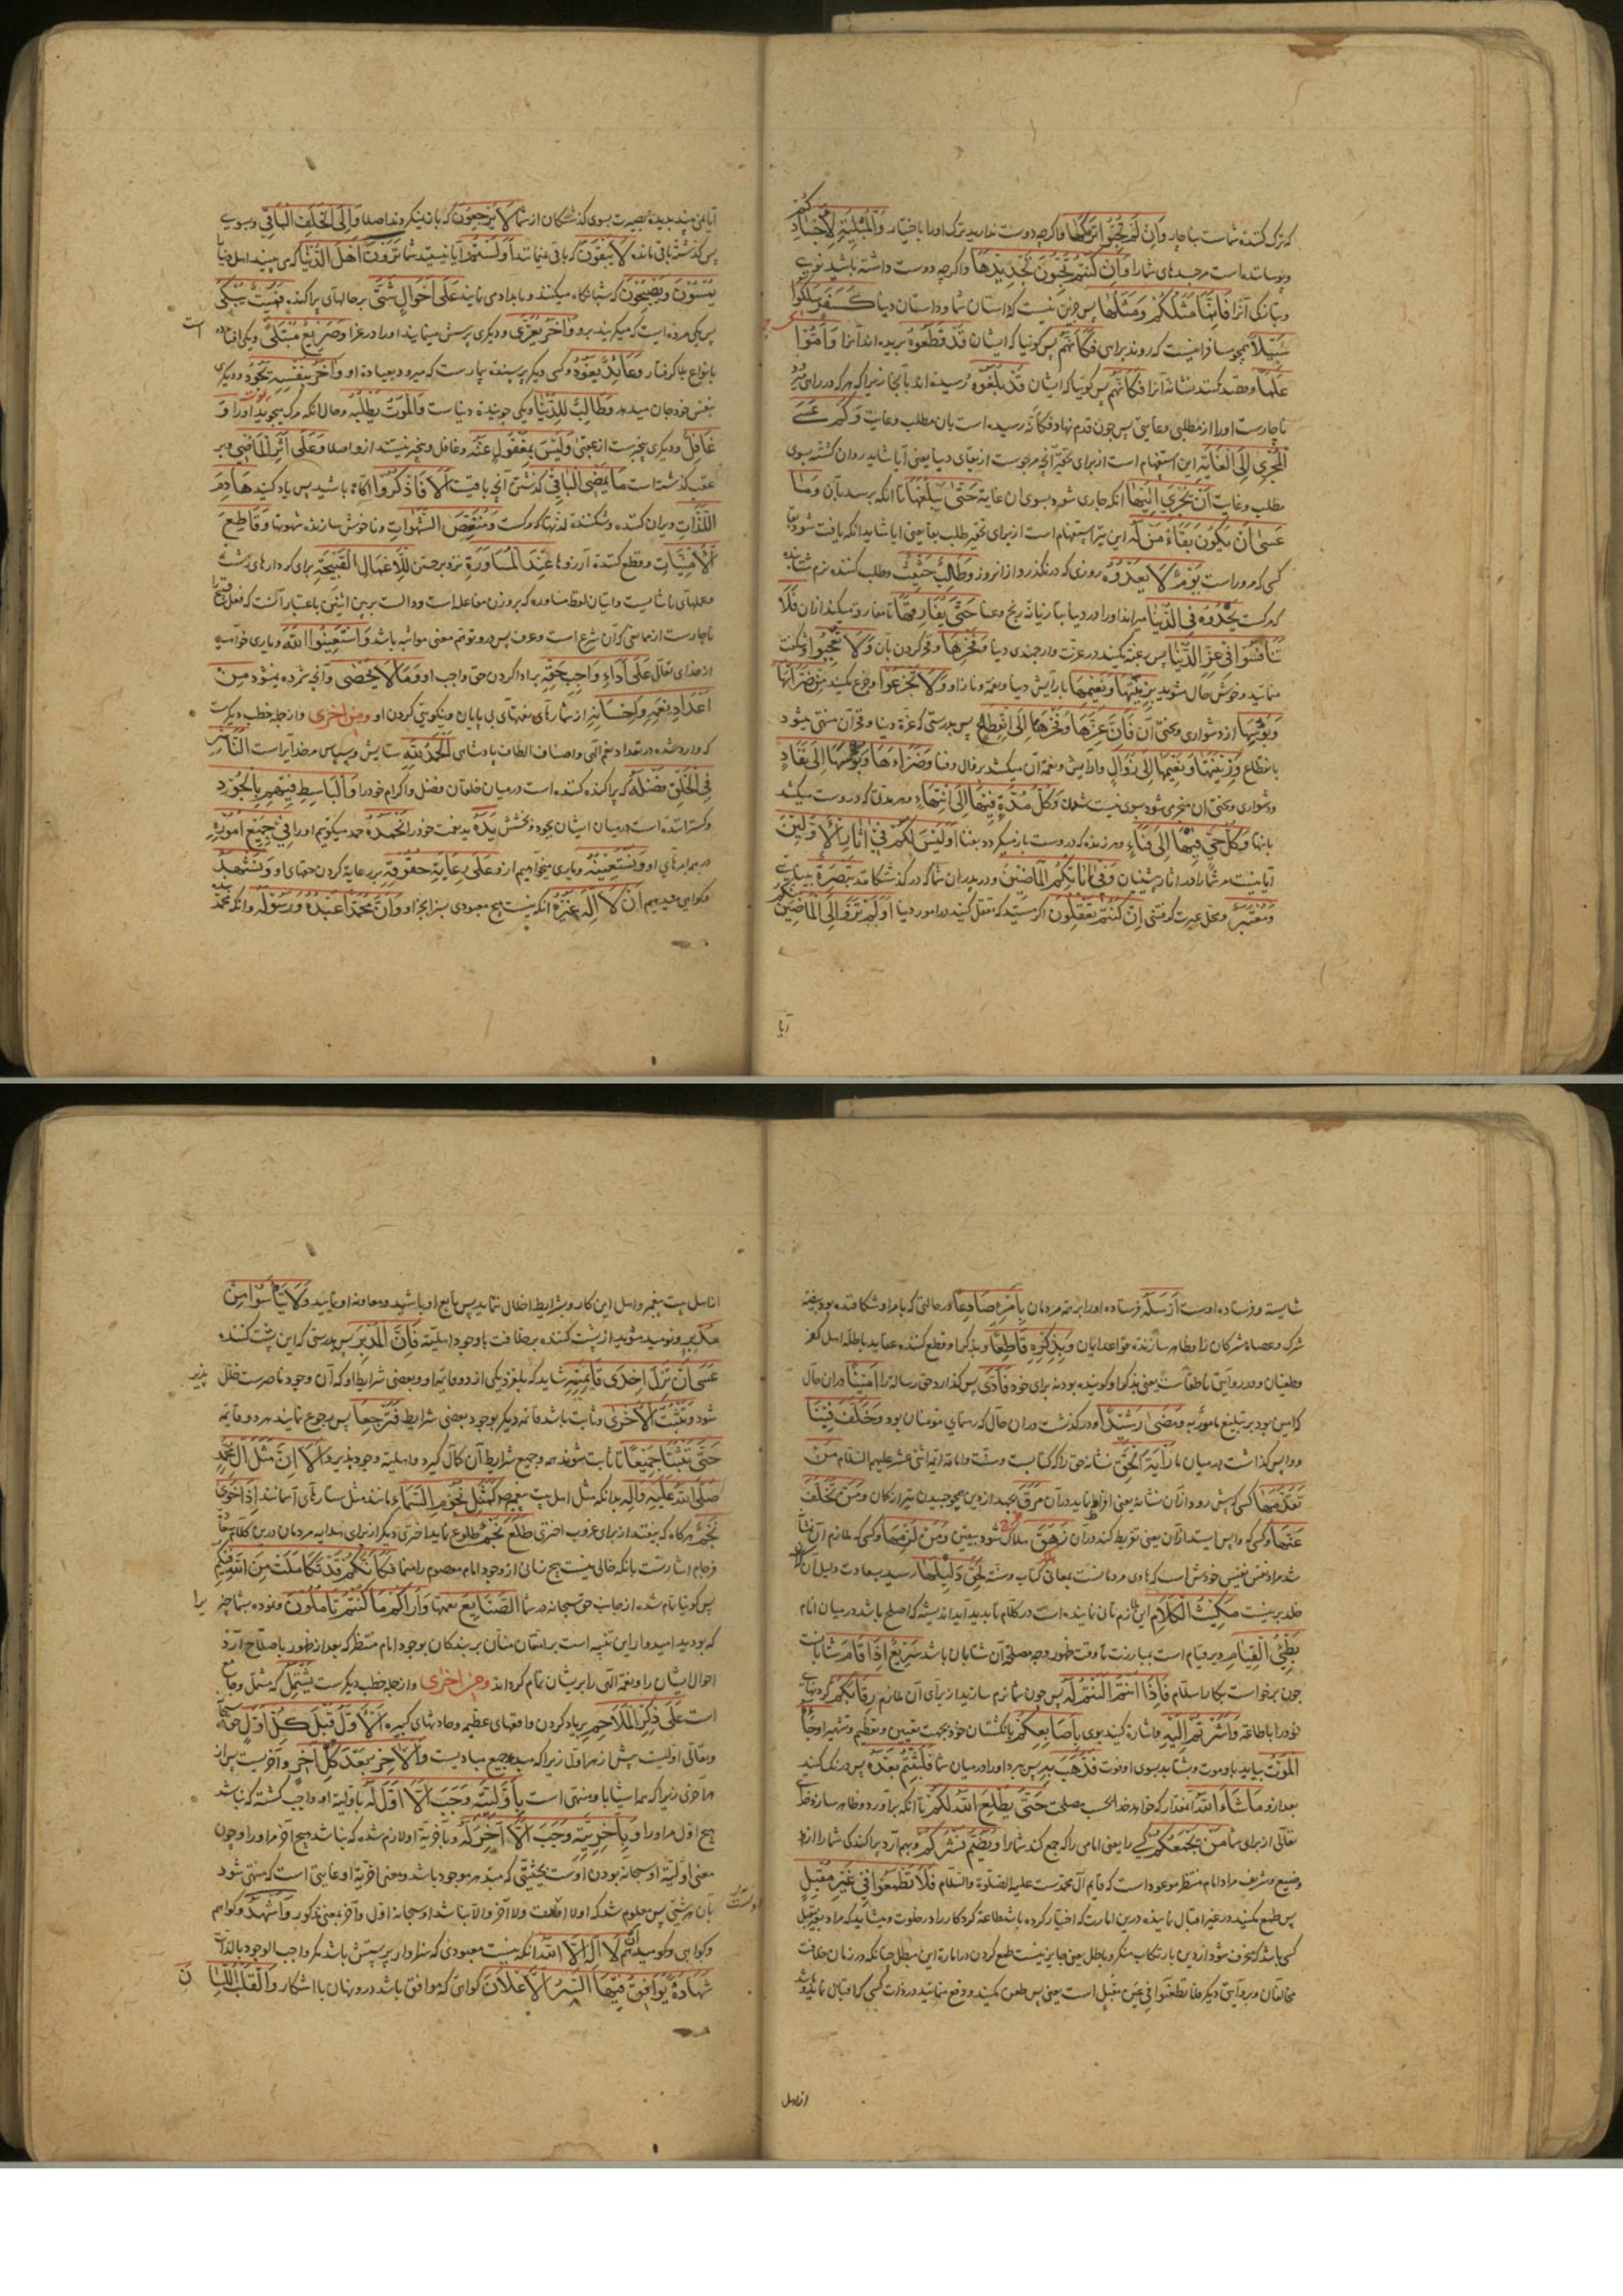 که ترک کننده شماست بناچار وَاِن لَم تُحِبُّوا تَرکَها و اگرچه دوست ندارید ترک او را باختیار وَالمُبلِیَةِ لِاَجسادِکُم
و پوساننده است مر جسدهای شما را وَاِن کُنتُم تُحِبّونَ تَجدیدَها و اگرچه دوست داشته باشید نوی
و تازگی آنرا فَاِنَّما مَثَلُکُم وَمَثَلُها پس جز این نیست که داستان شما و داستان دنیا کَسَفرٍ سَلَکُوا
سَبیلاً همچو مسافرانیست که روند براهی فَکَاَنَّهُم پس گوئیا که ایشان قَد قَطَعُوهُ بریده اند آنرا وَاَمُّوا
عَلَماً و قصد کنند نشانه آنرا فَکَاَنَّهُم پس گوئیا که ایشان قَد بَلَغُوهُ رسیده اند بآنجا زیرا که هر که در راهی رود
ناچارست او را از مطلبی و غایتی پس چون قدم نهاد فکأنه رسیده است بان مطلب و غایت وَکَم عَسَی
المُجری اِلَی الغایَةِ این استفهام است از برای تحقیر آنچه مرجوست از بقای دنیا یعنی آیا شاید روان کننده بسوی
مطلب و غایت اَن یَجرِیَ اِلَیها آنکه جاری شود بسوی ان غایة حَتّی یَبلُغَها تا آنکه برسد بآن وَما
عَسی اَن یَکُونَ بَقاءُ مَن لَهُ این نیز استفهام است از برای تحقیر طلب بقا یعنی آیا شاید آنکه یافت شود بقا
کسی که مر اوراست یَومٌ لا یَعدُوهُ روزی که در نگذرد از انروز وَطالِبٌ حَثیثٌ و طلب کننده نرم شتابنده
که مرگست یَحدُوهُ فِی الدُّنیا میراند او را در دنیا بتازیانه رنج و عنا حَتّی یُفارِقَها تا مفارقت میکند از ان فَلا
تَنافَسُوا فی عِزِّ الدُّنیا پس رغبت مکنید در عزت و ارجمندی دنیا وَفَخرِها و فخر کردن بآن وَلا تَعجَبُوا و شگفت
منمائید و خوش حال مشوید بِزینَتِها وَنَعیمِها بآرایش دنیا و نعمة و ناز او وَلا تَجزَعُوا و جزع مکنید مِن ضَرّائِها
وَبُؤسِها از دشواری و سختی آن فَاِنَّ عِزَّها وَفَخرَها اِلَی انقِطاعٍ پس بدرستی که عزة دنیا و فخر آن منتهی میشود
بانقطاع وَزینَتَها وَنَعیمَها اِلی زَوالٍ و آرایش و نعمة آن میکشد بزوال و فنا وَضَرّاءَها وَبُؤسَها اِلی نَفادٍ
و دشواری و سختی ان منجر می شود بسوی نیست شدن وَکُلُّ مُدَّةٍ فیها اِلَی انتِهاءٍ و هر مدتی که دروست میکشد
بانتها وَکُلُّ حَیٍّ فیها اِلی فَناءٍ و هر زنده که دروست باز میگردد بفنا اَوَلَیسَ لَکُم فی اثارِ الاَوَّلینَ
آیا نیست مر شما را در آثار پیشینیان وَفی ابائِکُمُ الماضینَ و در پدران شما که در گذشتگانند تَبصِرَةٌ بینایی
وَمُعتَبَرٌ و محل عبرت گرفتن اِن کُنتُم تَعقِلُونَ اگر هستید که تعقل کنید در امور دنیا اَوَلَم تَرَوا اِلَی الماضینَ مِنکُم
آیا
آیا نمی بینید بدیدهٔ بصیرت بسوی گذشتگان از شما لا یَرجِعُونَ که باز نمیگردند اصلا وَاِلَی الخَلَفِ الباقی و بسوی
پس گذشتهٔ باقی مانده لا یَبقَونَ که باقی نمیمانند اَوَلَستُم و آیا نیستید شما تَرَونَ اَهلَ الدُّنیا که می بینید اهل دنیا را
یُمسُونَ وَیُصبِحُونَ که شبانگاه میکنند و بامداد می نمایند عَلی اَحوالٍ شَتّی بر حالهای پراکنده فَمَیِّتٌ یُبکی
پس یکی مرده ایست که میگریند برو وَاخَرُ یُعَزّی و دیگری پرسش مینمایند او را در عزا وَصَریعٌ مُبتَلیً و یکی افتاده است
بانواع بلا گرفتار وَعائِدٌ یَعُودُ و کسی دیگر پرسنده بیمارست که میرود بعیادة او وَاخَرُ بِنَفسِهِ یَجُودُ و دیگری
بنفس خود جان میدهد وَطالِبٌ لِلدُّنیا و یکی جوینده دنیاست وَالمَوتُ یَطلُبُهُ و حال انکه مرگ میجوید او را وَ
غافِلٌ و دیگری بیخبرست از عقبی وَلَیسَ بِمَغفُولٍ عَنهُ و غافل و بیخبر نیستند از و اصلا وَعَلی اَثَرِ الماضی و بر
عقب گذشته است ما یَمضِی الباقی گذشتن آنچه باقیست اَلا فَاذکُرُوا آگاه باشید پس یاد کنید هادِمَ
اللَّذّاتِ ویران کننده و شکننده لذتها که مرگست وَمُنَغِّصَ الشَّهَواتِ و ناخوش سازنده شهوتها وَقاطِعَ
الاُمنِیّاتِ و قطع کننده آرزوها عِندَ المُساوَرَةِ نزد برجستن لِلاَعمالِ القَبیحَةِ برای کردارهای زشت
و عملهای ناشایست و اتیان لفظ مساوره که بر وزن مفاعله است و دالست برین اثنین باعتبار آنست که فعل قبیح را
ناچارست از مانعی که آن شرع است و عرف پس درو توهم معنی مواثبه باشد وَاستَعینُوا اللهَ و یاری خواهید
از خدای تعالی عَلی اَداءِ واجِبِ حَقِّهِ بر ادا کردن حق واجب او وَما لا یُحصی و آنچه شمرده نمیشود مِن
اَعدادِ نِعَمِهِ وَاِحسانِهِ از شمارهای نعمتهای بی پایان و نیکوئی کردن او ومن اخری و از جمله خطب دیگرست
که وارد شده در تعداد نعم الهی و اصناف الطاف پادشاهی اَلحَمدُ لِلّهِ ستایش و سپاس مر خدایراست النّاشِرِ
فِی الخَلقِ فَضلَهُ که پراکنده کننده است در میان خلقان فضل و اکرام خود را وَالباسِطِ فیهِم بِالجُودِ
و گستراننده است در میان ایشان بجود و بخشش یَدَهُ ید نعمت خود را نَحمَدُهُ حمد میگوئیم او را فی جَمیعِ اُمُورِهِ
در همه امرهای او وَنَستَعینُهُ و یاری میخواهیم از و عَلی رِعایَةِ حُقُوقِهِ بر رعایة کردن حقهای او وَنَشهَدُ
و گواهی میدهیم اَن لا اِلهَ غَیرُهُ آنکه نیست هیچ معبودی بسزا بجز او وَاَنَّ مُحَمَّداً عَبدُهُ وَرَسُولُهُ و آنکه محمد بنده
شایسته و فرستاده اوست اَرسَلَهُ فرستاده او را بر همه مردمان بِاَمرِهِ صادِعاً در حالتی که بامر او شکافنده بود بیضه
شرک و عصاة مشرکان را و ظاهر سازنده قواعد ایمان وَبِذِکرِهِ قاطِعاً و بذکر او قطع کننده عقاید باطله اهل کفر
و طغیان و در روایتی ناطقاست یعنی بذکر او گوینده بود نه برای خود فَاَدّی پس گذارد حق رسالة را اَمیناً دران حال
که امین بود بر تبلیغ مأمور به وَمَضی رَشیداً و درگذشت دران حال که رهنمای مؤمنان بود وَخَلَّفَ فینا
و واپس گذاشت در میان ما رایَةَ الحَقِّ نشانه حق را که کتابست و سنّت و امامة ائمه اثنی عشر علیهم السلام مَن
تَقَدَّمَها کسی که پیش رود از آن نشانه یعنی افراط نماید دران مَرَقَ بجهد از دین همچو جهیدن تیر از کمان وَمَن تَخَلَّفَ
عَنها و کسی که واپس ایستد از آن یعنی تفریط کند دران زَهَقَ هلاک شود بیقین وَمَن لَزِمَها و کسی که ملازم آن نشانه
شد مراد نفس نفیس خودش است که هادی مردمانست بمعانی کتاب و سنّه لَحِقَ دَلیلُها رسید بسعادت دلیل آن
خلد برینست مَکیثُ الکَلامِ این ملازم تانی نماینده است در کلام تا بدید آید اندیشه که اصلح باشد در میان انام
بَطِیءُ القِیامِ دیر قیام است بمبارزت تا وقت ظهور وجه مصلحة آن شتابان باشد سَریعٌ اِذا قامَ شتابانست
چون برخواست بکار اسلام فَاِذا اَنتُم اَلَنتُم لَهُ پس چون شما نرم سازید از برای آن ملازم رِقابَکُم گردنهای
خود را باطاعة وَاَشَرتُم اِلَیهِ و اشارة کنید بسوی او بِاَصابِعِکُم بانگشتان خود بجهت تعیین و تعظیم و تشهیر او جاءَهُ
المَوتُ بیاید باو موت و بشتابد بسوی او فوت فَذَهَبَ بِهِ پس ببرد او را از میان شما فَلَبِثتُم بَعدَهُ پس درنگ کنید
بعد از و ما شاءَ اللهُ آنمقدار که خواهد خدا بحسب مصلحت حَتّی یُطلِعَ اللهُ لَکُم تا آنکه برآورد و ظاهر سازد خدای
تعالی از برای شما مَن یَجمَعُکُم کسی را یعنی امامی را که جمع کند شما را وَیَضُمُّ نَشرَکُم و بهم آرد پراکندگی شما را از
وضیع و شریف مراد امام منتظر موعود است که قایم آل محمدست علیه الصلوة والسلام فَلا تَطمَعُوا فی غَیرِ مُقبِلٍ
پس طمع مکنید در غیر اقبال نماینده درین امارت که اختیار کرده باشد طاعة کردگار را در خلوت و میشاید که مراد بغیر مقبل
کسی باشد که منحرف شود از دین بارتکاب منکر و باطل یعنی جایز نیست طمع کردن در امارة این مبطل چنانکه در زمان خلافت
مخالفان و بروایتی دیگر فلا تطعنوا فی عین مقبل است یعنی پس طعن مکنید و دفع منمائید در ذات کسی که اقبال نماید و باشد
از اهل
از اهل بیت پیغمبر و اهل این کار و شرایط اخلال ننماید پس تابع او باشید و معاونة او نمائید وَلا تَیأَسُوا مِن
مُدبِرٍ و نومید مشوید از پشت کننده بر خلافت با وجود اهلیّة فَاِنَّ المُدبِرَ پس بدرستی که این پشت کننده
عَسی اَن تَزِلَّ اِحدی قائِمَتَیهِ شاید که بلغزد یکی از دو قایمه او و بعضی شرایط او که آن وجود ناصرست خلل پذیر
شود وَتَثبُتَ الاُخری و ثابت باشد قائمه دیگر بوجود بعضی شرایط فَتَرجِعا پس رجوع نمایند هر دو قایمه
حَتّی تَثبُتا جَمیعاً تا ثابت شوند همه و جمیع شرایط آن کمال گیرد و اهلیة وجود پذیرد اَلا اِنَّ مَثَلَ الِ مُحَمَّدٍ
صَلَّی اللهُ عَلَیهِ وَآلِهِ بدانکه مثل اهل بیت پیغمبر ص کَمَثَلِ نُجُومِ السَّماءِ مانند مثل ستارهای آسمانند اِذا خَوی
نَجمٌ هرگاه که بیفتد از برای غروب اختری طَلَعَ نَجمٌ طلوع نماید اختری دیگر از برای اهتدا به مردمان درین کلام سعادت
فرجام اشارتست بانکه خالی نیست هیچ زمانی از وجود امام معصوم راهنما فَکَاَنَّکُم قَد تَکامَلَت مِنَ اللهِ فیکُم
پس گویا تمام شده از جانب حق سبحانه در شما الصَّنایِعُ نعمتها وَاَراکُم ما کُنتُم تَأمُلُونَ و نموده بشما چیزیرا
که بودید امیدوار این تنبیه است بر امتنان منّان بر بندگان بوجود امام منتظر که بعد از ظهور باصلاح آرد
احوال ایشان را و نعمة الهی را بریشان تمام گرداند ومن اخری و از جمله خطب دیگرست یَشتَمِلُ که مشتمل و جامع
است عَلی ذِکرِ المَلاحِمِ بر یاد کردن واقعهای عظیم و حادثهای کبیره اَلاَوَّلُ قَبلَ کُلِّ اَوَّلٍ حق سبحانه
و تعالی اولیست پیش از هر اول زیرا که مبدء جمیع مبادیست وَالاخِرُ بَعدَ کُلِّ اخِرٍ و آخریست پس از
هر آخری زیرا که همه اشیا باو منتهی است بِاَوَّلِیَّتِهِ وَجَبَ اَن لا اَوَّلَ لَهُ باولیة او واجب گشته که نباشد
هیچ اول مر او را وَبِاخِرِیَّتِهِ وَجَبَ اَن لا اخِرَ لَهُ و بآخریة او لازم شده که نباشد هیچ آخر مر او را و چون
معنی اولیّة او سبحانه بودن اوست بحیثیتی که مبدء هر موجود باشد و معنی آخریة او غایتی است که منتهی شود
بآن هر شیئی پس معلوم شد که اولا اول و لا آخر و الا نباشد او سبحانه اول و آخر بمعنی مذکور وَاَشهَدُ و گواهم
و گواهی و گویم اَن لا اِلهَ اِلاَّ اللهُ آنکه نیست معبودی که سزاوار پرستش باشد مگر واجب الوجود بالذات
شَهادَةً یُوافِقُ فیهَا السِّرُّ الاِعلانَ گواهی که موافق باشد درو نهان با اشکار وَالقَلبُ اللِّسانَ